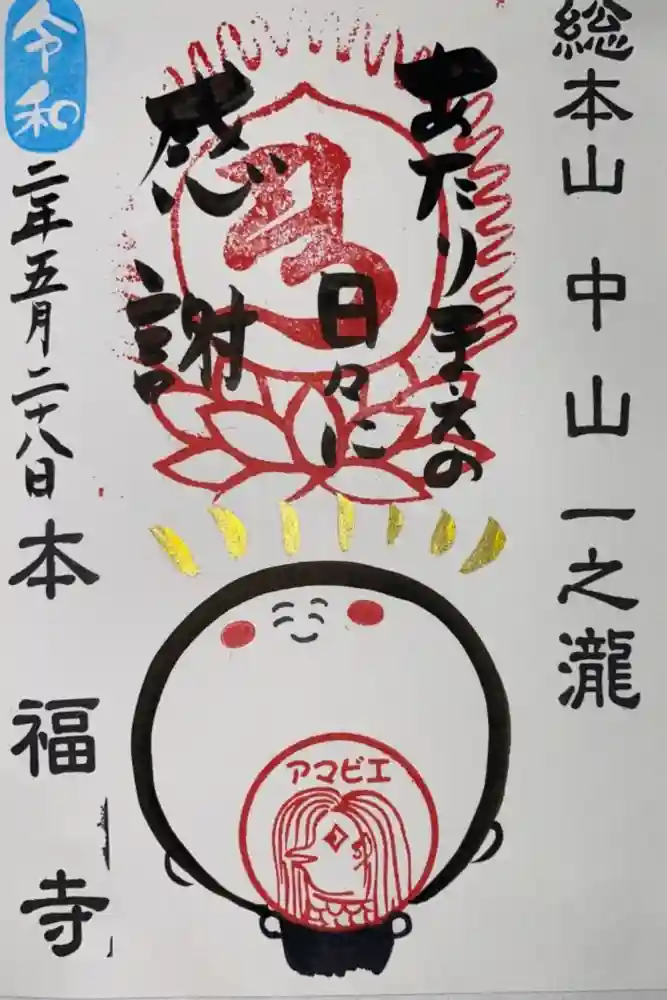 総本山 中山 一之瀧
あたり手えの
日々に
感謝
令和
二年五月二十八日
本福寺
アマビエ